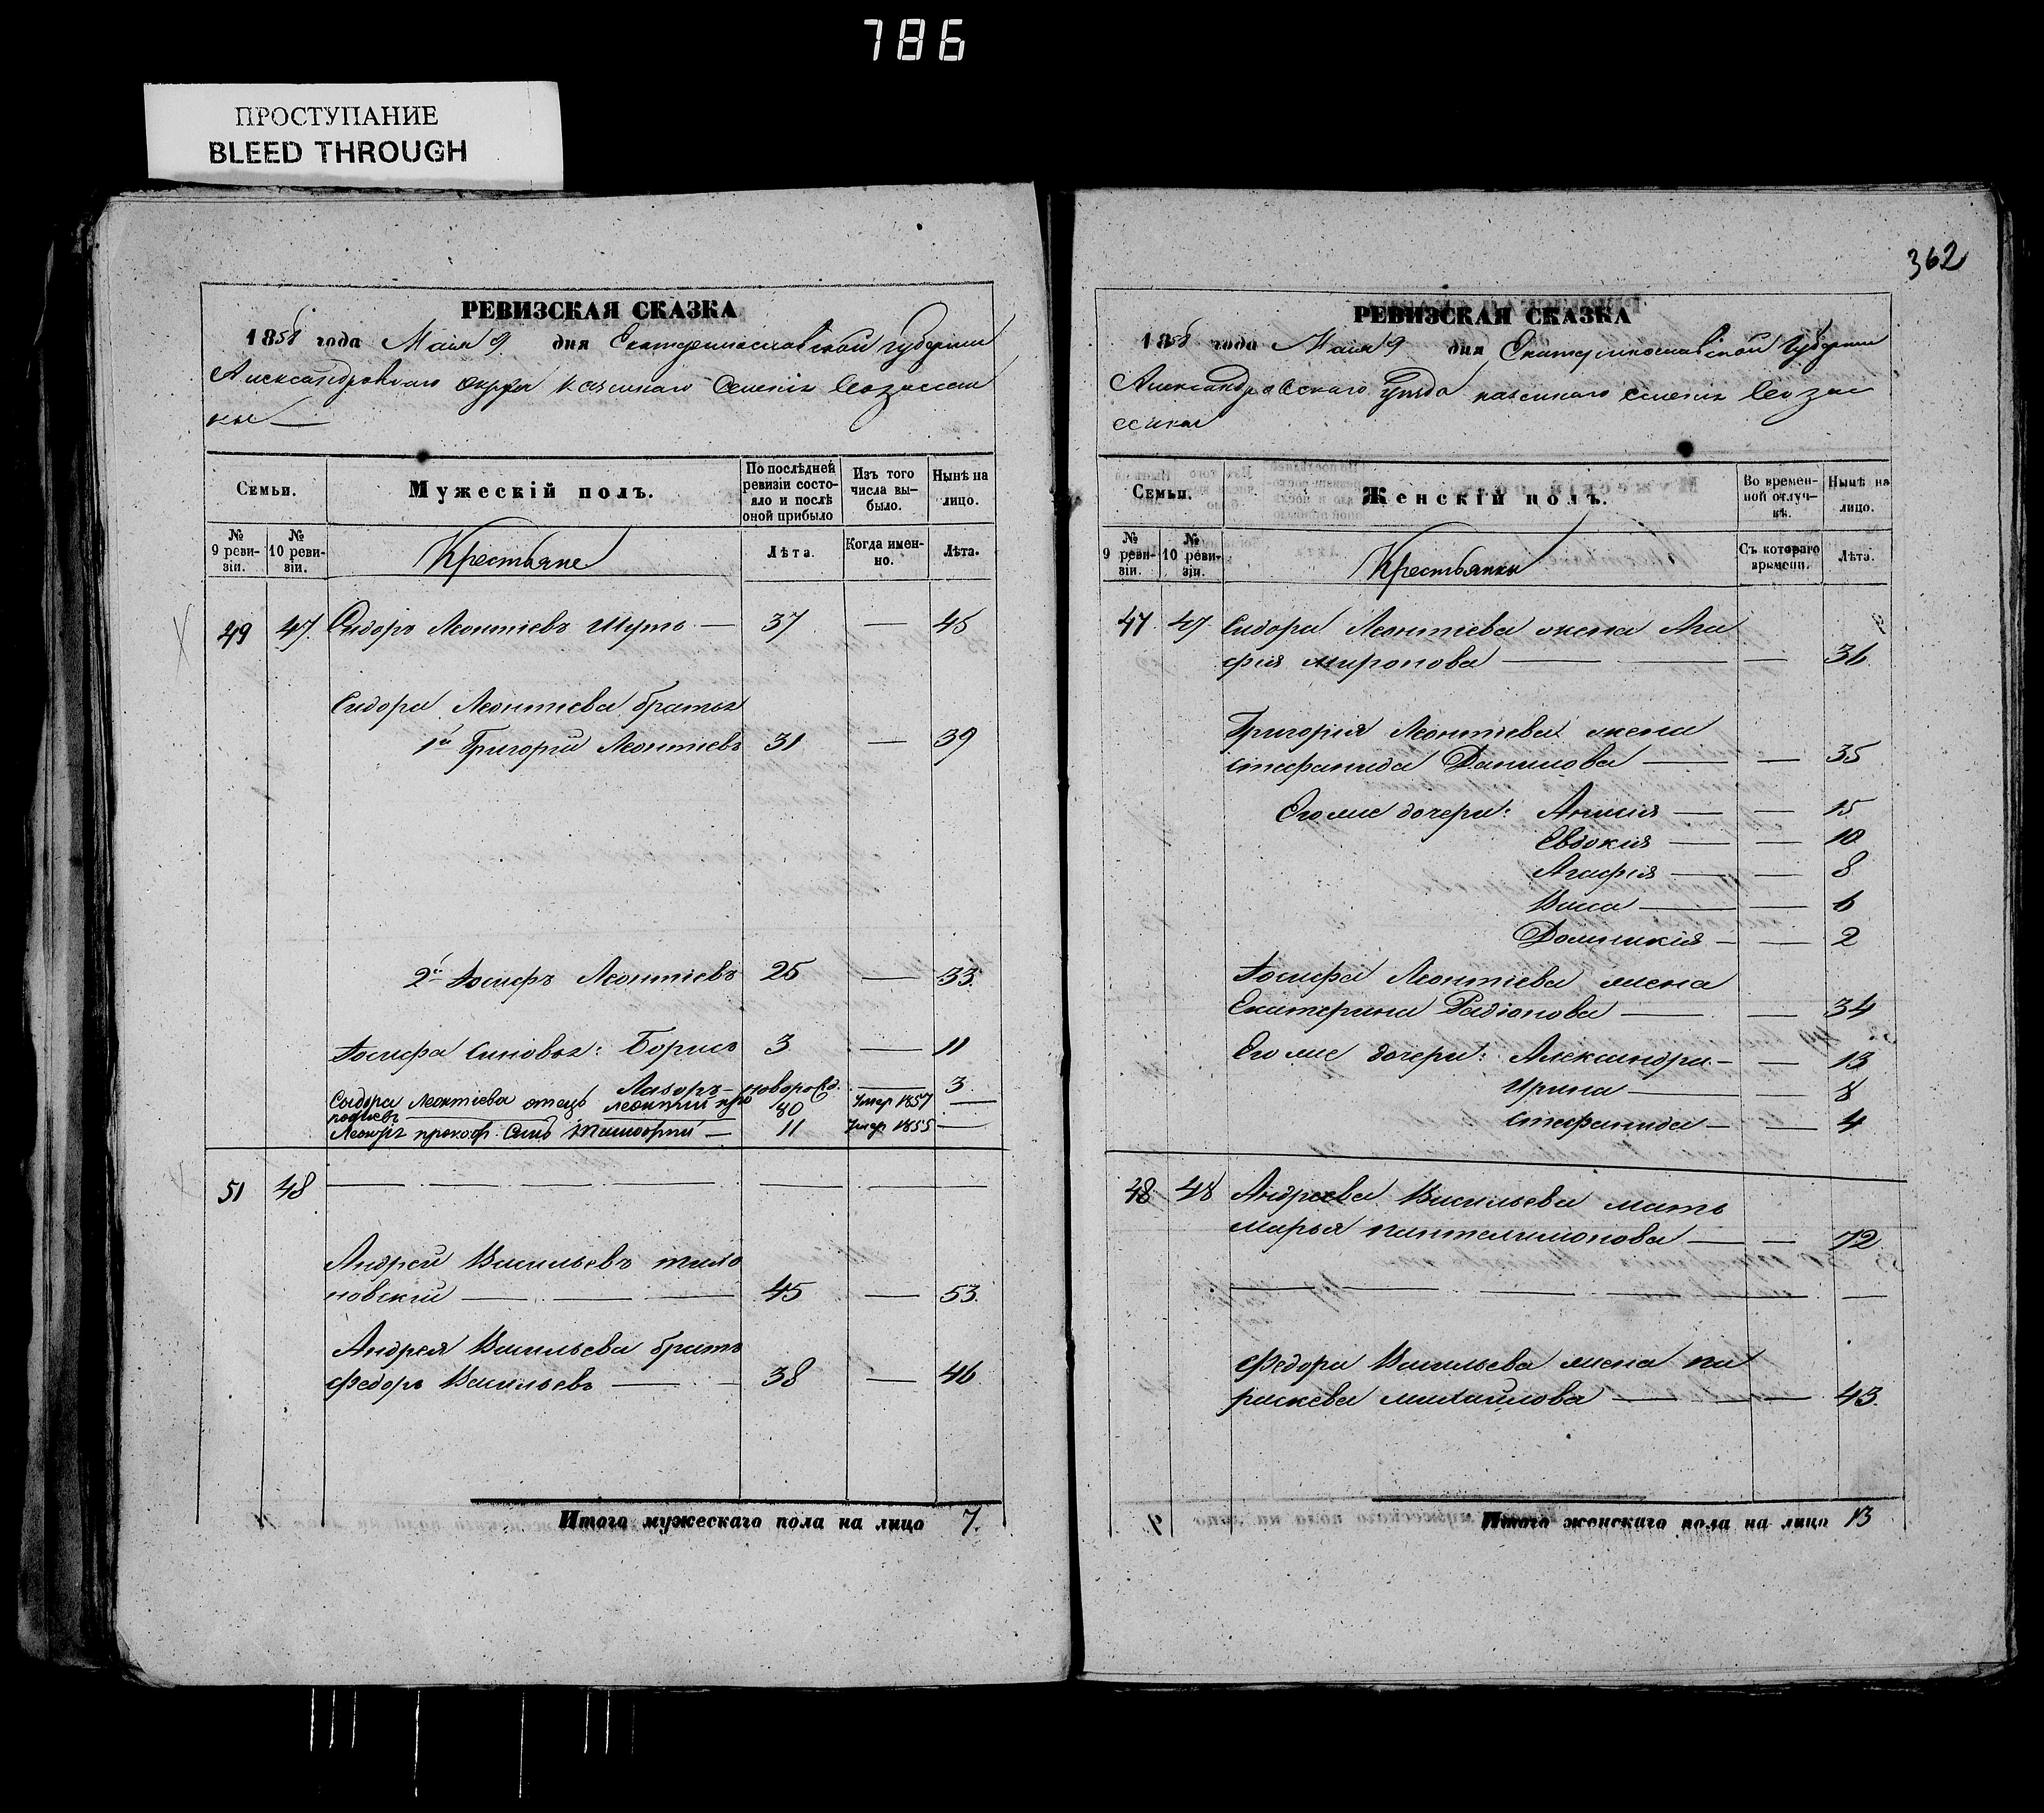 786
ПРОСТУПАНИЕ
BLEED THROUGH
РЕВИЗСКАЯ СКАЗКА
1858 года Маія 9 дня Екатеринославской губерніи
Александровскаго округа казеннаго Селенія
Семьи.
Мужескій полъ.
По послѣдней ревизіи состояло и послѣ оной прибыло
Изъ того числа выбыло.
Нынѣ на лицо.
№ 9 ревизіи.
№ 10 ревизіи.
Крестьяне
Лѣта.
Когда именно.
Лѣта.
49 47 Сидоръ Леонтіевъ Шуть — 37 — 45
Сидора Леонтіева братья
1й Григорій Леонтіевъ 31 — 39
2й Іосифъ Леонтіевъ 25 — 33
Іосифа Сыновья: Борисъ 3 — 11
Лазарь — новорожд. — 3
Сидора Леонтіева отецъ Леонтій про 40 Умер 1857 —
кофіевъ
11 Умер 1855 —
51 48 — — — — — —
Андрей Васильевъ
новскій — — — 45 — 53
Андрея Васильева братъ
Федоръ Васильевъ — — 38 — 46
Итого мужескаго пола на лицо 7.
362
РЕВИЗСКАЯ СКАЗКА
1858 года Маія 9 дня Екатеринославской Губерніи
Александровскаго уѣзда казеннаго Селенія
Семьи.
Женскій полъ.
Во временной отлучкѣ.
Нынѣ на лицо.
№ 9 ревизіи.
№ 10 ревизіи.
Крестьянки
Съ котораго времени.
Лѣта.
47 47 Сидора Леонтіева жена Ага
фія Миронова — — — 36
Григорія Леонтіева жена
Стефанида Данилова — — 35
Его же дочери: Анна — — 15
Евдокия — — 10
Агафія — — 8
Васса — — 6
Домникія — — 2
Іосифа Леонтіева жена
Екатерина Радіонова — — 34
Его же дочери: Александра — — 13
Ирина — — 8
Стефанида — — 4
48 48 Андрея Васильева мать
Марья Пантелимонова — — 72
— — — — — —
Федора Васильева жена Па
раскева Михайлова — — — 43
Итого женскаго пола на лицо 13